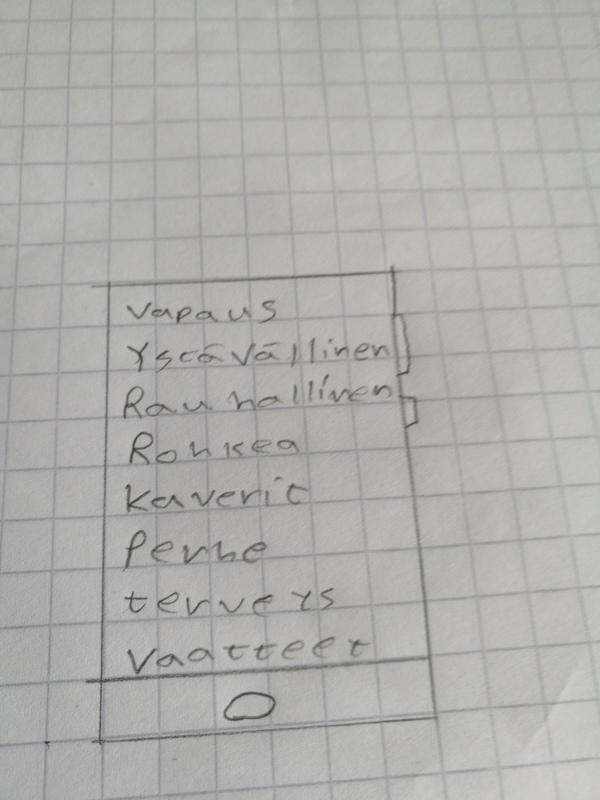 Vapaus
Yscāvāllinen
Rauhallinen
Rohkea
Kaverit
Perhe
terveys
Vaatteet